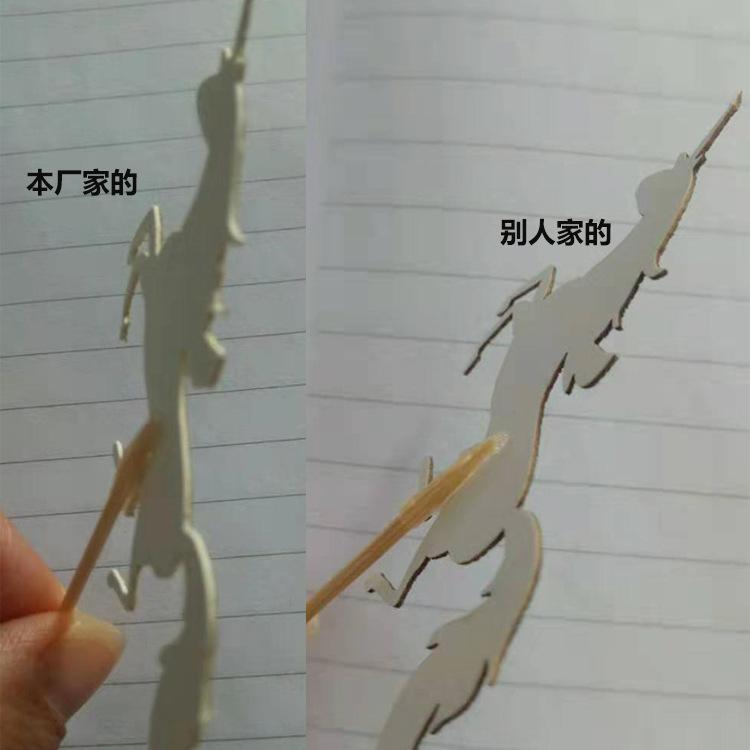 本厂家的
别人家的